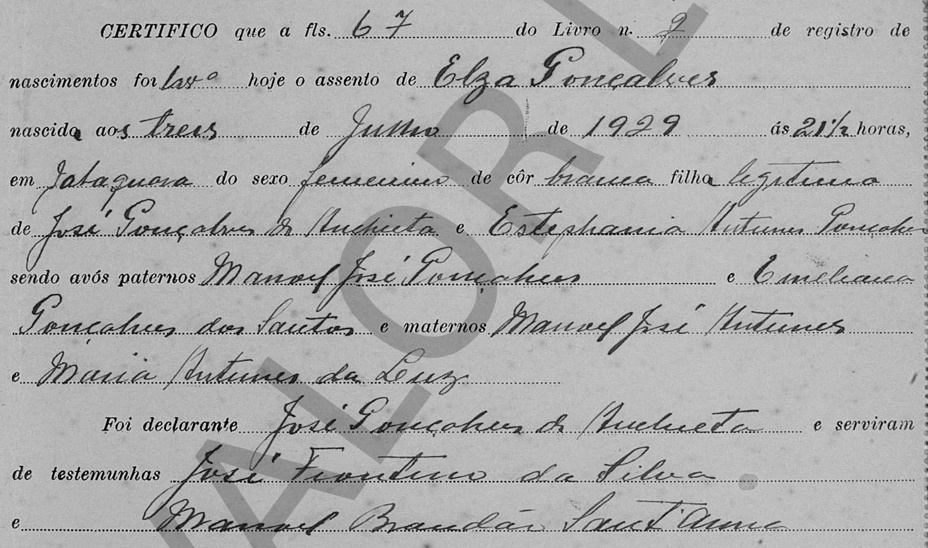 CERTIFICO que a fls. 67 do Livro n. 2 de registro de
nascimentos foi hoje o assento de Elza Gonçalves
nascida aos tres de Julho de 1929 ás 21½ horas,
em do sexo femenino de côr branca filha legitima
de José Gonçalves de Anchieta e Estephania Antunes Gonçalves
sendo avós paternos Manoel José Gonçalves e Emeliana
Gonçalves dos Santos e maternos Manoel José Antunes
e Maria Antunes da Luz
Foi declarante José Gonçalves de Anchieta e serviram
de testemunhas José da Silva
e Manoel Brandão Sant'Anna
VALOR